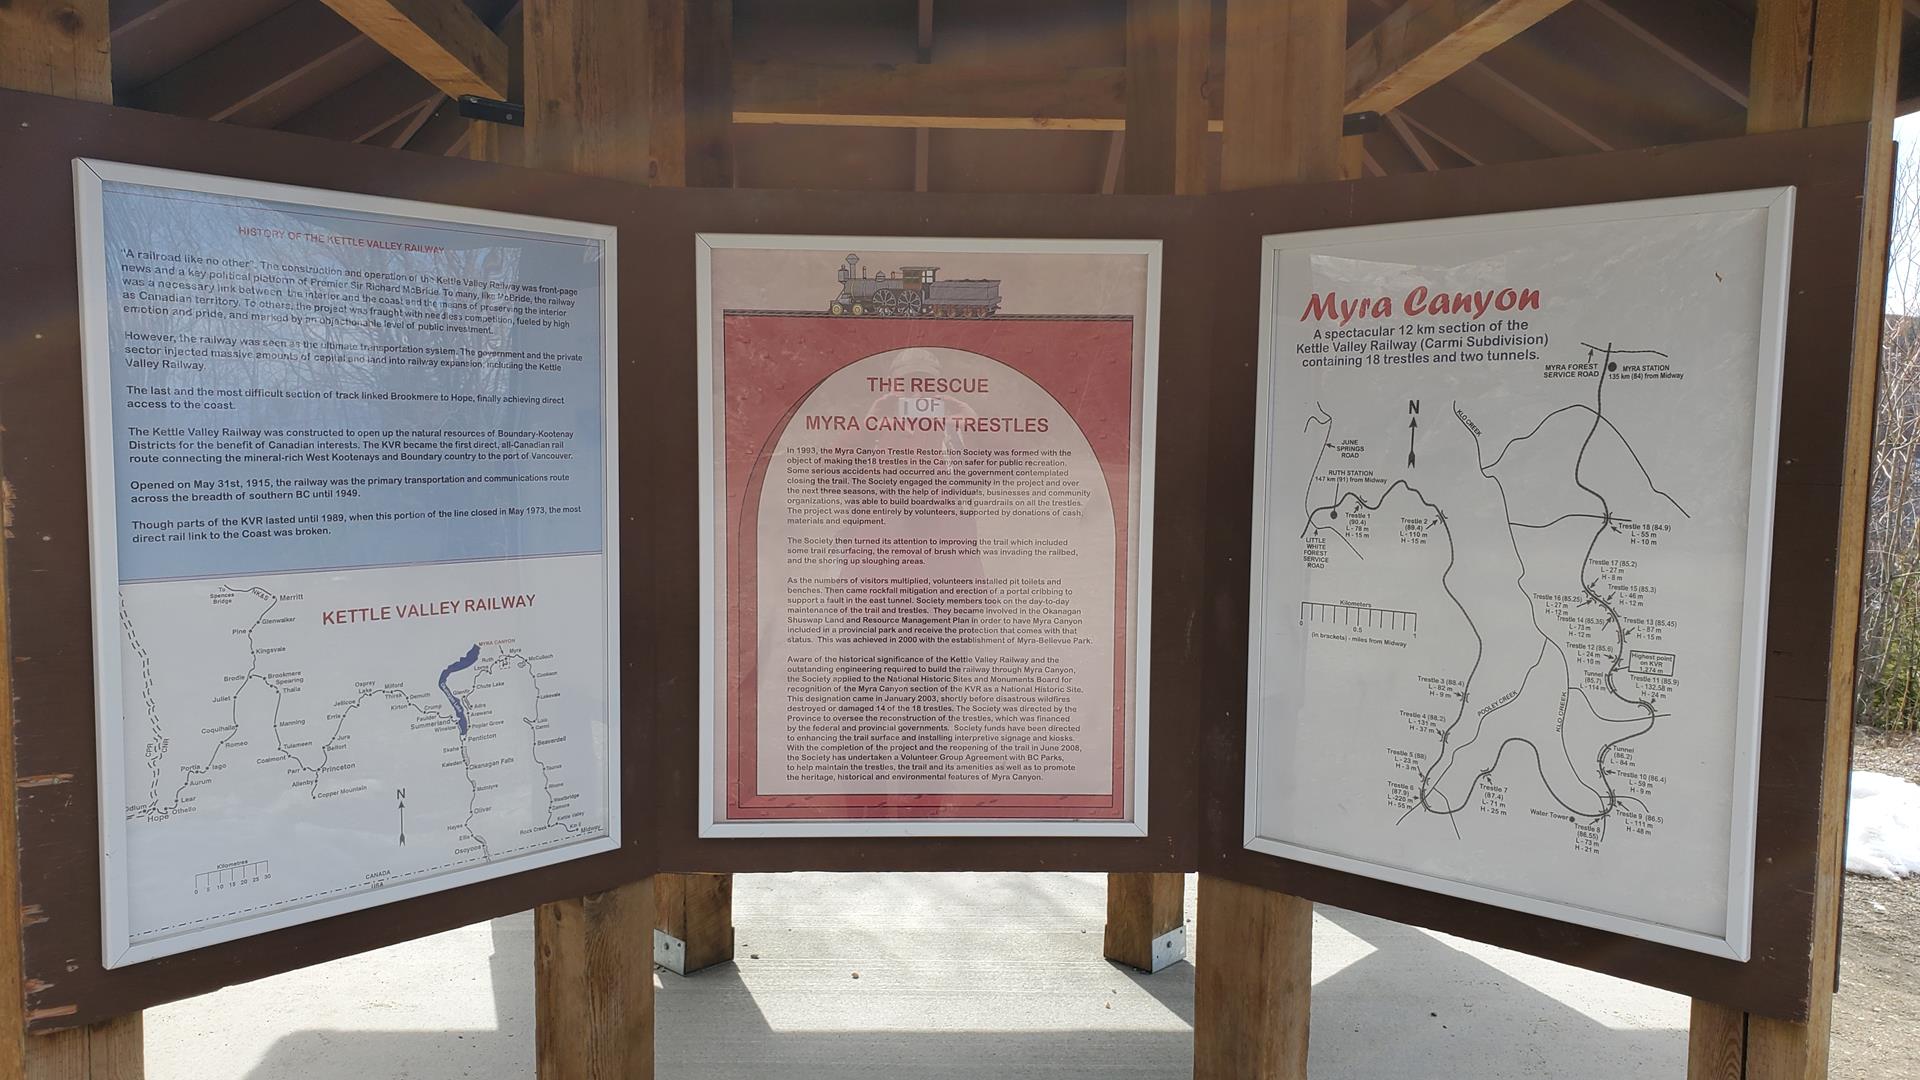 HISTORY OF THE KETTLE VALLEY RAILWAY
"A railroad like no other". The construction and operation of the Kettle Valley Railway was front-page
news and a key political platform of Premier Sir Richard McBride. To many, like McBride, the railway
was a necessary link between the interior and the coast and the means of preserving the interior
as Canadian territory. To others, the project was fraught with needless competition, fueled by high
emotion and pride, and marked by an objectionable level of public investment.
However, the railway was seen as the ultimate transportation system. The government and the private
sector injected massive amounts of capital and land into railway expansion, including the Kettle
Valley Railway.
The last and the most difficult section of track linked Brookmere to Hope, finally achieving direct
access to the coast.
The Kettle Valley Railway was constructed to open up the natural resources of Boundary-Kootenay
Districts for the benefit of Canadian interests. The KVR became the first direct, all-Canadian rail
route connecting the mineral-rich West Kootenays and Boundary country to the port of Vancouver.
Opened on May 31st, 1915, the railway was the primary transportation and communications route
across the breadth of southern BC until 1949.
Though parts of the KVR lasted until 1989, when this portion of the line closed in May 1973, the most
direct rail link to the Coast was broken.
KETTLE VALLEY RAILWAY
To
Spences
Bridge
NK&S
Merritt
Glenwalker
Pine
Kingsvale
Brodie
Brookmere
Spearing
Thalia
Juliet
Manning
Coquihalla
Romeo
Tulameen
Coalmont
Portia
Iago
Aurum
Lear
Othello
Hope
Odlum
CPR
CNR
Parr
Princeton
Allenby
Copper Mountain
Belfort
Jura
Erris
Jellicoe
Osprey
Lake
Milford
Thirsk
Kirton
Demuth
Crump
Faulder
Summerland
Winslow
MYRA CANYON
Myra
Ruth
Lorna
McCulloch
Chute Lake
Glenfir
Adra
Arawana
Poplar Grove
Penticton
Skaha
Kaleden
Okanagan Falls
McIntyre
Oliver
Hayes
Ellis
Osoyoos
Cookson
Lakevale
Lois
Carmi
Beaverdell
Taurus
Rhone
Westbridge
Zamora
Kettle Valley
Rock Creek
Km 0
Midway
N
Kilometres
0 5 10 15 20 25 30
CANADA
USA
THE RESCUE
OF
MYRA CANYON TRESTLES
In 1993, the Myra Canyon Trestle Restoration Society was formed with the
object of making the18 trestles in the Canyon safer for public recreation.
Some serious accidents had occurred and the government contemplated
closing the trail. The Society engaged the community in the project and over
the next three seasons, with the help of individuals, businesses and community
organizations, was able to build boardwalks and guardrails on all the trestles.
The project was done entirely by volunteers, supported by donations of cash,
materials and equipment.
The Society then turned its attention to improving the trail which included
some trail resurfacing, the removal of brush which was invading the railbed,
and the shoring up sloughing areas.
As the numbers of visitors multiplied, volunteers installed pit toilets and
benches. Then came rockfall mitigation and erection of a portal cribbing to
support a fault in the east tunnel. Society members took on the day-to-day
maintenance of the trail and trestles. They became involved in the Okanagan
Shuswap Land and Resource Management Plan in order to have Myra Canyon
included in a provincial park and receive the protection that comes with that
status. This was achieved in 2000 with the establishment of Myra-Bellevue Park.
Aware of the historical significance of the Kettle Valley Railway and the
outstanding engineering required to build the railway through Myra Canyon,
the Society applied to the National Historic Sites and Monuments Board for
recognition of the Myra Canyon section of the KVR as a National Historic Site.
This designation came in January 2003, shortly before disastrous wildfires
destroyed or damaged 14 of the 18 trestles. The Society was directed by the
Province to oversee the reconstruction of the trestles, which was financed
by the federal and provincial governments. Society funds have been directed
to enhancing the trail surface and installing interpretive signage and kiosks.
With the completion of the project and the reopening of the trail in June 2008,
the Society has undertaken a Volunteer Group Agreement with BC Parks,
to help maintain the trestles, the trail and its amenities as well as to promote
the heritage, historical and environmental features of Myra Canyon.
Myra Canyon
A spectacular 12 km section of the
Kettle Valley Railway (Carmi Subdivision)
containing 18 trestles and two tunnels.
MYRA FOREST
SERVICE ROAD
MYRA STATION
135 km (84) from Midway
N
KLO CREEK
JUNE
SPRINGS
ROAD
RUTH STATION
147 km (91) from Midway
LITTLE
WHITE
FOREST
SERVICE
ROAD
Trestle 1
(90.4)
L - 78 m
H - 15 m
Trestle 2
(89.4)
L - 110 m
H - 15 m
Trestle 18 (84.9)
L - 55 m
H - 10 m
Trestle 17 (85.2)
L - 27 m
H - 8 m
Trestle 15 (85.3)
L - 46 m
H - 12 m
Trestle 16 (85.25)
L - 27 m
H - 12 m
Trestle 14 (85.35)
L - 73 m
H - 12 m
Trestle 13 (85.45)
L - 87 m
H - 15 m
Trestle 12 (85.6)
L - 24 m
H - 10 m
Highest point
on KVR
1,274 m
Tunnel
(85.7)
L - 114 m
Trestle 11 (85.9)
L - 132.58 m
H - 24 m
Kilometers
0 0.5 1
(in brackets) - miles from Midway
Trestle 3 (88.4)
L - 82 m
H - 9 m
Trestle 4 (88.2)
L - 131 m
H - 37 m
Trestle 5 (88)
L - 23 m
H - 3 m
Trestle 6
(87.9)
L - 220 m
H - 55 m
POOLEY CREEK
KLO CREEK
Trestle 7
(87.4)
L - 71 m
H - 25 m
Water Tower
Trestle 8
(86.55)
L - 73 m
H - 21 m
Tunnel
(86.2)
L - 84 m
Trestle 10 (86.4)
L - 59 m
H - 9 m
Trestle 9 (86.5)
L - 111 m
H - 48 m